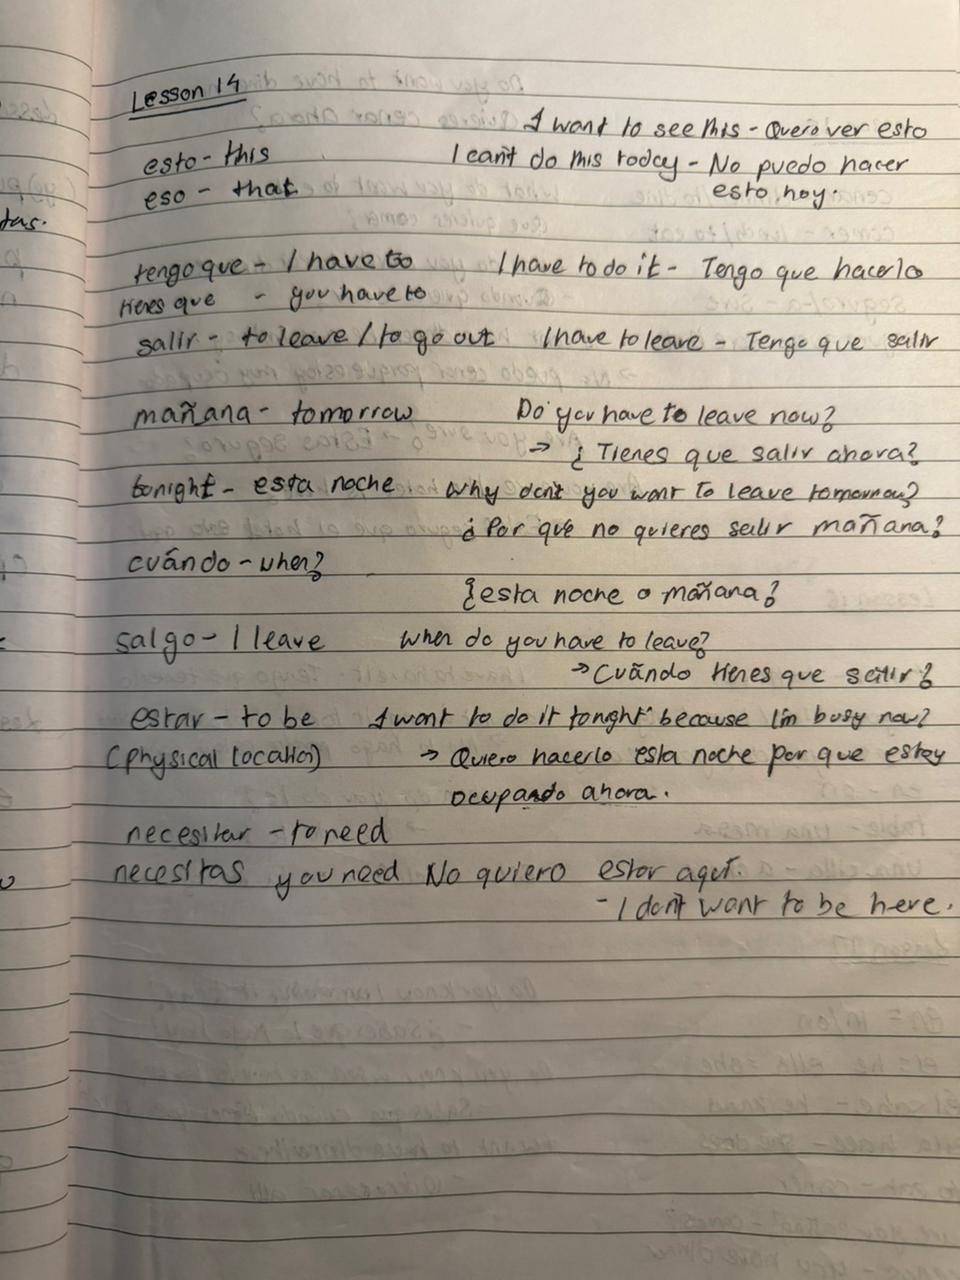 Lesson 14
I want to see this - Quero ver esto
esto - this
I can't do this today - No puedo hacer
eso - that
esto hoy.
tas.
tengo que - I have to
I have to do it - Tengo que hacerlo
tienes que - you have to
salir - to leave / to go out
I have to leave - Tengo que salir
mañana - tomorrow
Do you have to leave now?
→ ¿ Tienes que salir ahora?
tonight - esta noche
Why don't you want to leave tomorrow?
¿ Por qué no quieres salir mañana?
cuándo - when?
¿esta noche o mañana?
salgo - I leave
When do you have to leave?
→ Cuándo tienes que salir?
estar - to be
I want to do it tonight because I'm busy now?
(physical location)
→ Quiero hacerlo esta noche por que estoy
ocupando ahora.
necesitar - to need
necesitas you need
No quiero estar aquí.
- I don't want to be here.